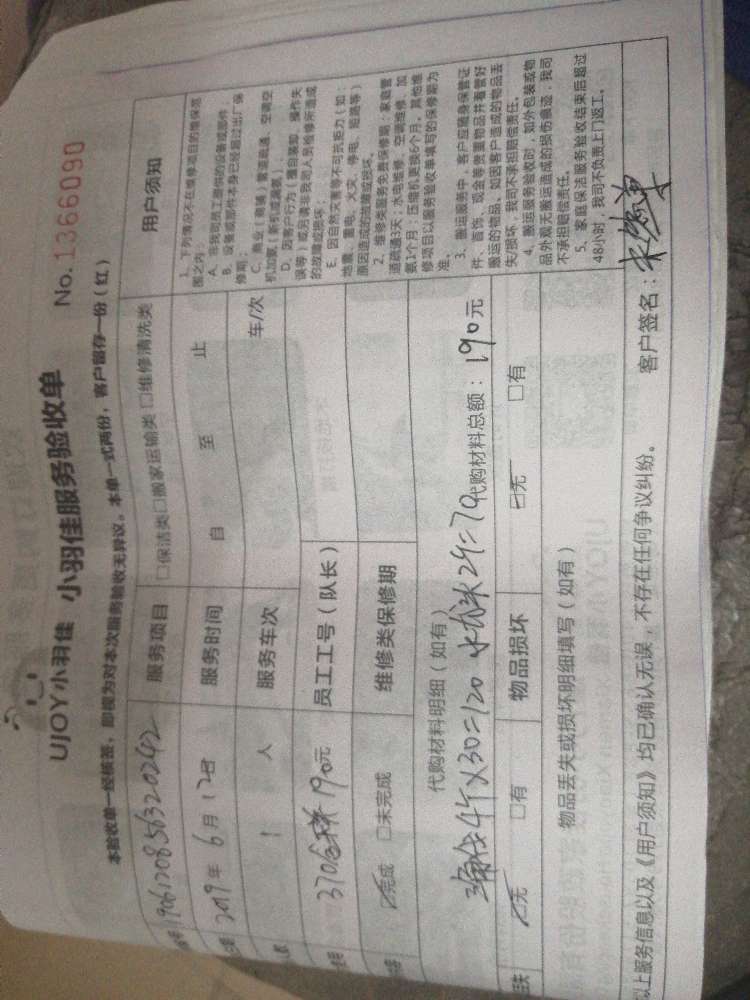 UJOY小羽佳 小羽佳服务验收单 No.1366090
本验收单一经核签，即视为对本次服务验收无异议。本单一式两份，客户留存一份（红）
1906120856320242 服务项目 □保洁类□搬家运输类 □维修清洗类
2019年 6月 12日 服务时间 自 至 止
1 人 服务车次 车/次
370 190元 员工工号（队长）
☑完成 □未完成 维修类保修期
代购材料明细（如有）
4个×30=120 2个=70 代购材料总额：190元
☑无 □有 物品损坏 ☑无 □有
物品丢失或损坏明细填写（如有）
用户须知
1、下列情况不在维修项目的维保范
围之内：
A、非我司员工提供的设备或部件；
B、设备或部件本身已经超过出厂保
修期；
C、商业（商铺）管道疏通、空调空
机加氨（新机或满氨）；
D、因客户行为（擅自装卸、操作失
误等）或另请非我司人员检修所造成
的故障或损坏；
E、因自然灾害等不可抗拒力（如：
地震、雷电、火灾、停电、短路等）
原因造成的故障或损坏。
2、维修类服务免费保修期：家庭管
道疏通3天；水电维修、空调维修、加
氨1个月；压缩机更换6个月。其他维
修项目以服务验收单填写的保修期为
准。
3、搬运服务中，客户应随身保管证
件、首饰、现金等贵重物品并看管好
搬运的物品。如因客户造成的物品丢
失/损坏，我司不承担赔偿责任。
4、搬运服务验收时，如外包装或物
品外观无搬运造成的损伤痕迹，我司
不承担赔偿责任。
5、家庭保洁服务验收结束后超过
48小时，我司不负责上门返工。
以上服务信息以及《用户须知》均已确认无误，不存在任何争议纠纷。 客户签名：